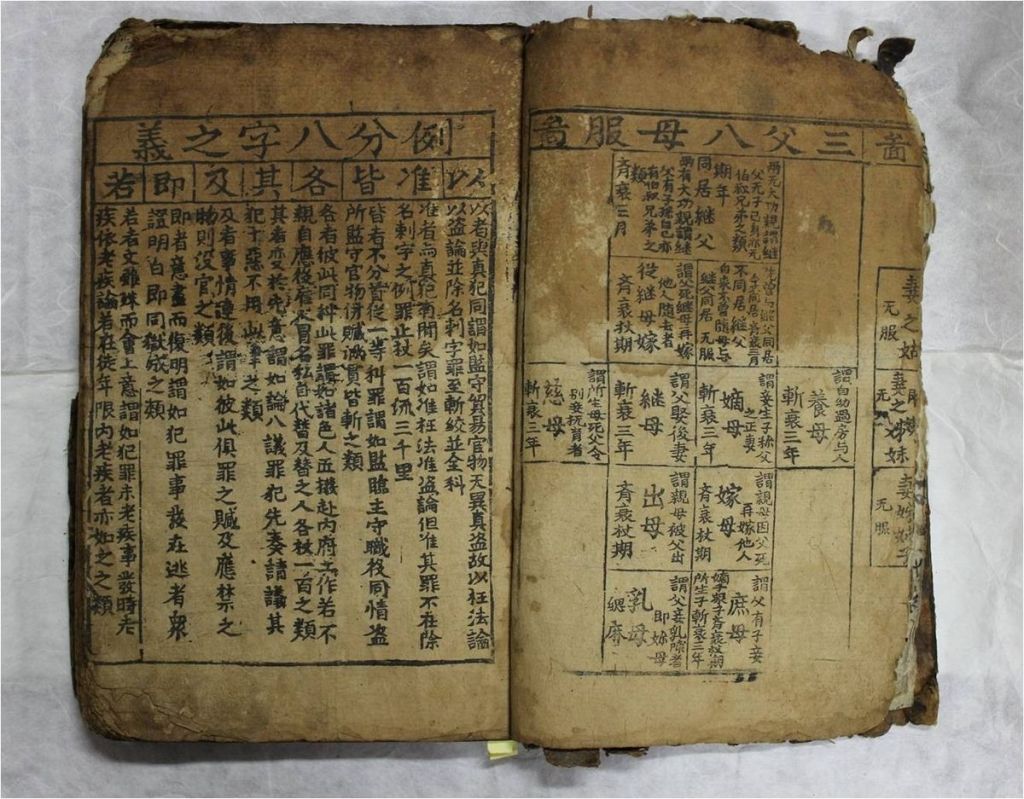 啚
无服
三父八母服啚
兩无大功親謂繼
父无子己身亦无
伯叔兄弟之類
期年
同居繼父
兩有大功親謂繼
父有子孫自己亦
有伯叔兄弟之
類
齊衰三月
不同居繼父
自來不曾隨母与
繼父同居 无服
謂父死繼母再嫁
他人隨去者
從繼母嫁
齊衰杖期
謂自幼過房与人
養母
斬衰三年
謂妾生子稱父
之正妻
嫡母
斬衰三年
謂父娶後妻
繼母
斬衰三年
謂所生母死父令
別妾撫育者
慈母
斬衰三年
謂親母因父死
再嫁他人
嫁母
齊衰杖期
謂親母被父出
出母
齊衰杖期
謂父有子妾
庶母
嫡子衆子齊衰杖期
所生子斬衰三年
謂父妾乳哺者
即妳母
乳母
緦麻
例分八字之義
以
准
皆
各
其
及
即
若
以者與真犯同謂如監守貿易官物无異真盗故以枉法論
以盗論並除名刺字罪至斬絞並全科
准者與真犯有間矣謂如准枉法准盗論但准其罪不在除
名刺字之例罪止杖一百流三千里
皆者不分首從一等科罪謂如監臨主守職役同情盗
所監守官物併贓滿貫皆斬之類
各者彼此同科此罪謂如諸色人匠撥赴内府工作若不
親自應役雇人冒名私自代替及替之人各杖一百之類
其者变於先意謂如論八議罪犯先奏請議其
犯十惡不用此律之類
及者事情連後謂如彼此俱罪之贓及應禁之
物則没官之類
即者意盡而復明謂如犯罪事發在逃者衆
證明白即同獄成之類
若者文雖殊而會上意謂如犯罪未老疾事發時老
疾依老疾論若在徒年限内老疾者亦如之之類